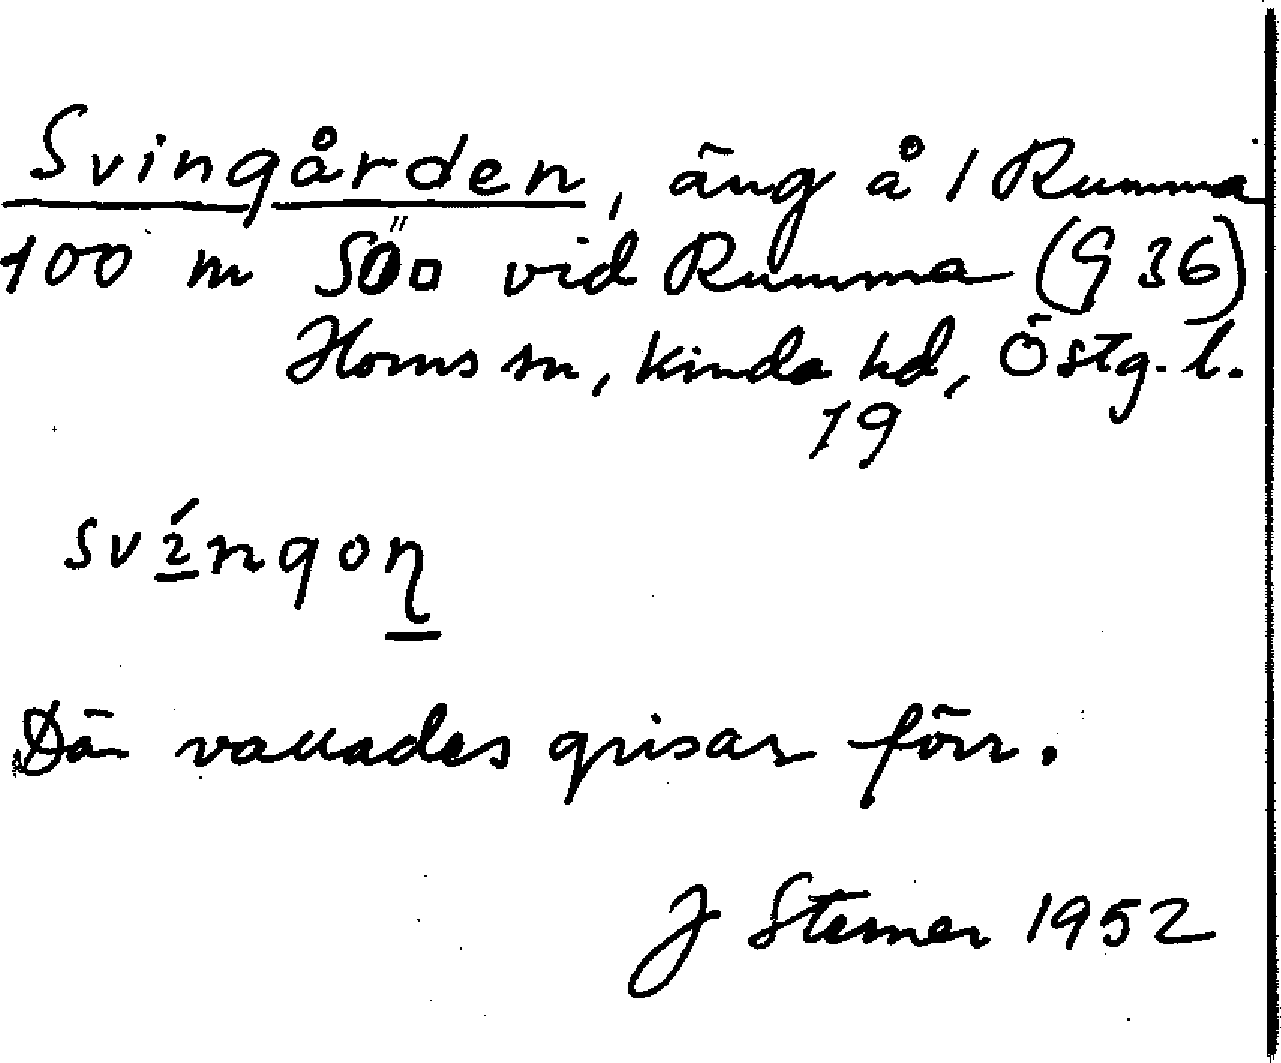 Svingården, äng å 1 Rumma
100 m SÖ□ vid Rumma (G 36)
Horns sn, Kinda hd, Östg. l.
19
svíngoη
Där vallades grisar förr.
J Sterner 1952